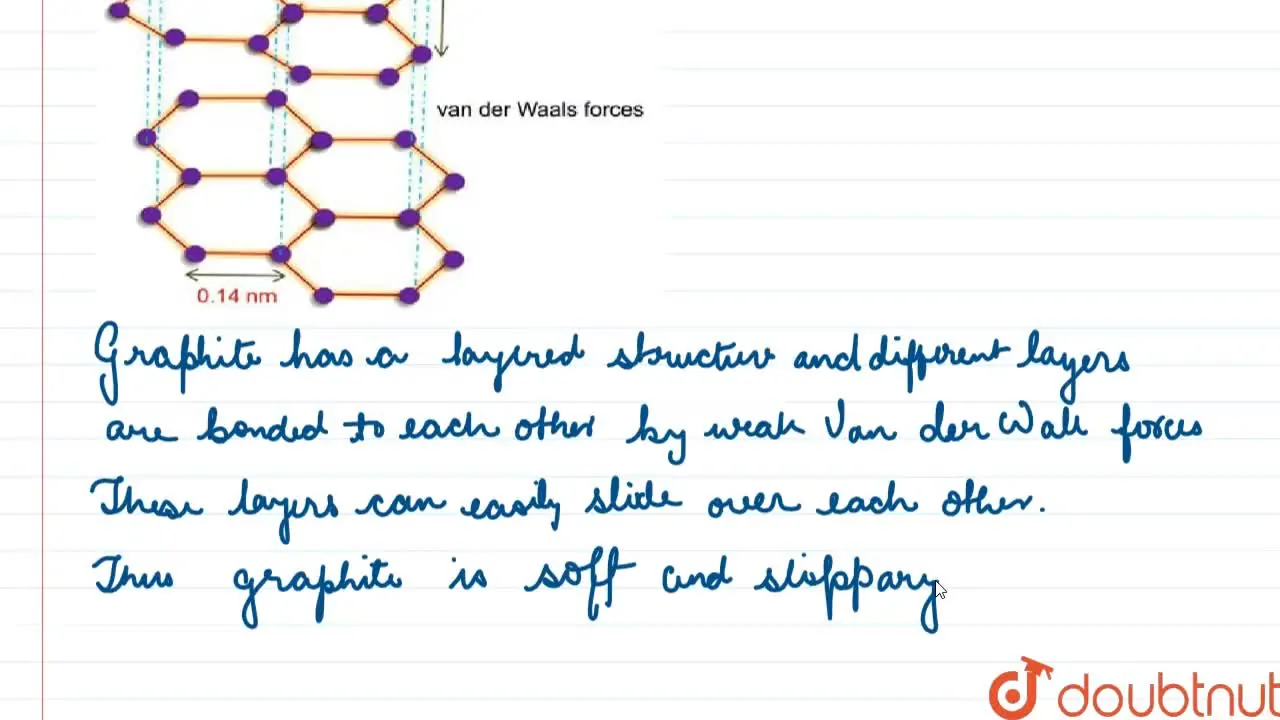 van der Waals forces
0.14 nm
Graphite has a layered structure and different layers
are bonded to each other by weak Van der Wall forces
These layers can easily slide over each other.
Thus graphite is soft and slippary
doubtnut